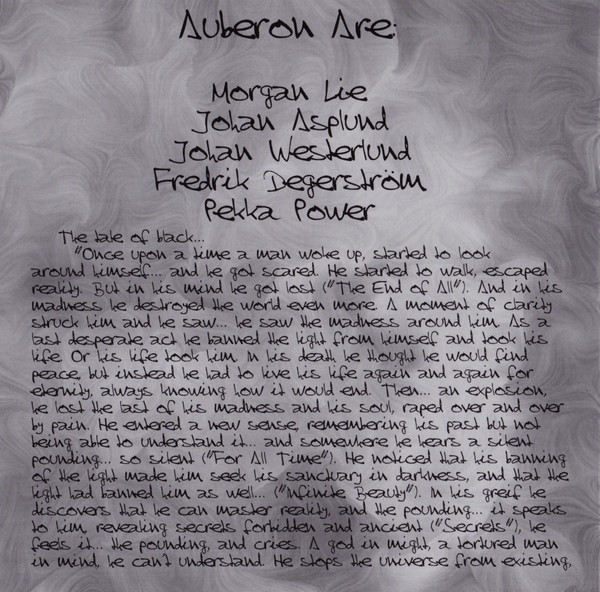 Auberon Are:
Morgan Lie
Johan Asplund
Johan Westerlund
Fredrik Degerström
Pekka Power
The tale of black...
"Once upon a time a man woke up, started to look
around himself... and he got scared. He started to walk, escaped
reality. But in his mind he got lost ("The End of All"). And in his
madness he destroyed the world even more. A moment of clarity
struck him and he saw... he saw the madness around him. As a
last desperate act he banned the light from himself and took his
life. Or his life took him. In his death he thought he would find
peace, but instead he had to live his life again and again for
eternity, always knowing how it would end. Then... an explosion,
he lost the last of his madness and his soul, raped over and over
by pain. He entered a new sense, remembering his past but not
being able to understand it... and somewhere he hears a silent
pounding... so silent ("For All Time"). He noticed that his banning
of the light made him seek his sanctuary in darkness, and that the
light had banned him as well... ("Infinite Beauty"). In his greif he
discovers that he can master reality, and the pounding... it speaks
to him, revealing secrets forbidden and ancient ("Secrets"), he
feels it... the pounding, and cries. A god in might, a tortured man
in mind, he can't understand. He stops the universe from existing,